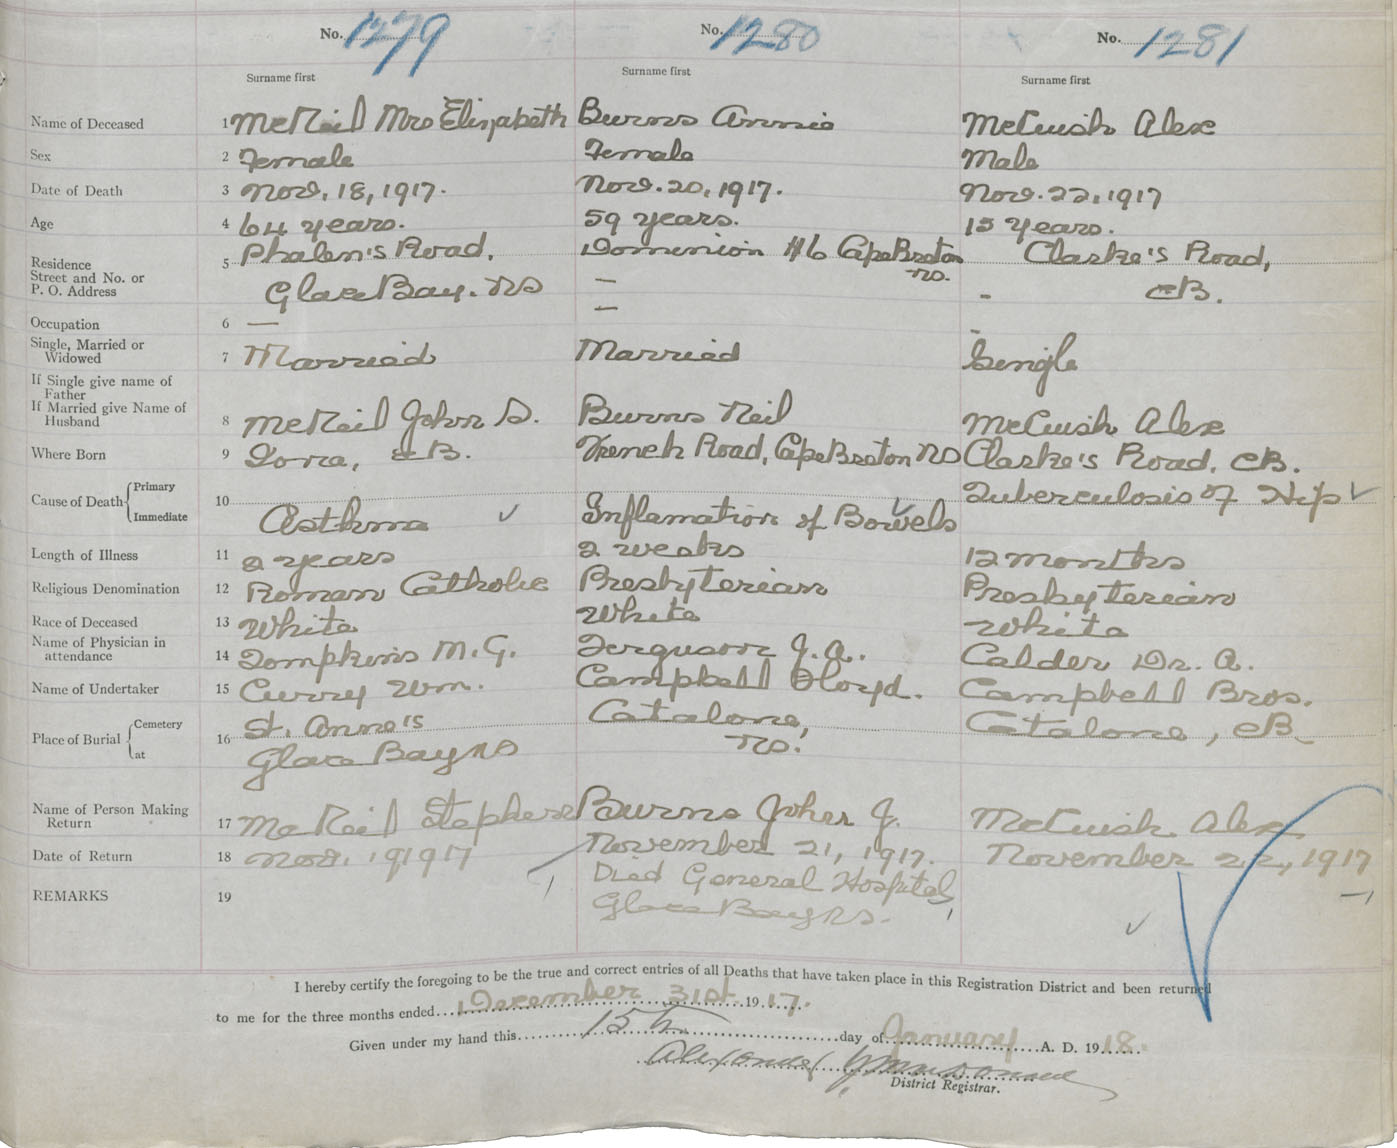 No. 1279 No. 1280 No. 1281
Surname first Surname first Surname first
Name of Deceased 1 McNeil Mrs Elizabeth Burns Annie McCuish Alex
Sex 2 Female Female Male
Date of Death 3 Nov. 18, 1917. Nov. 20, 1917. Nov. 22, 1917
Age 4 64 years. 59 years. 15 years.
Residence Street and No. or P. O. Address 5 Phalen's Road, Dominion #6 Cape Breton NS. Clarke's Road,
Glace Bay. NS — - CB.
Occupation 6 — —
Single, Married or Widowed 7 Married Married Single
If Single give name of Father
If Married give Name of Husband 8 McNeil John S. Burns Neil McCuish Alex
Where Born 9 Iona, CB. French Road, Cape Breton NS Clarke's Road, CB.
Cause of Death Primary 10 Tuberculosis of Hip
Immediate Asthma Inflamation of Bowels
Length of Illness 11 2 years 2 weeks 12 months
Religious Denomination 12 Roman Catholic Presbyterian Presbyterian
Race of Deceased 13 White White White
Name of Physician in attendance 14 Tompkins M.G. Ferguson J.A. Calder Dr. A.
Name of Undertaker 15 Curry Wm. Campbell Lloyd. Campbell Bros.
Place of Burial Cemetery 16 St. Anne's Catalone, Catalone, CB.
at Glace Bay NS NS.
Name of Person Making Return 17 McNeil Stephen Burns John J. McCuish Alex
Date of Return 18 Nov. 19 1917 November 21, 1917. November 22, 1917
REMARKS 19 Died General Hospital,
Glace Bay NS.
I hereby certify the foregoing to be the true and correct entries of all Deaths that have taken place in this Registration District and been returned
to me for the three months ended December 31st 1917.
Given under my hand this 15th day of January A. D. 1918.
Alexander J. MacDonald
District Registrar.